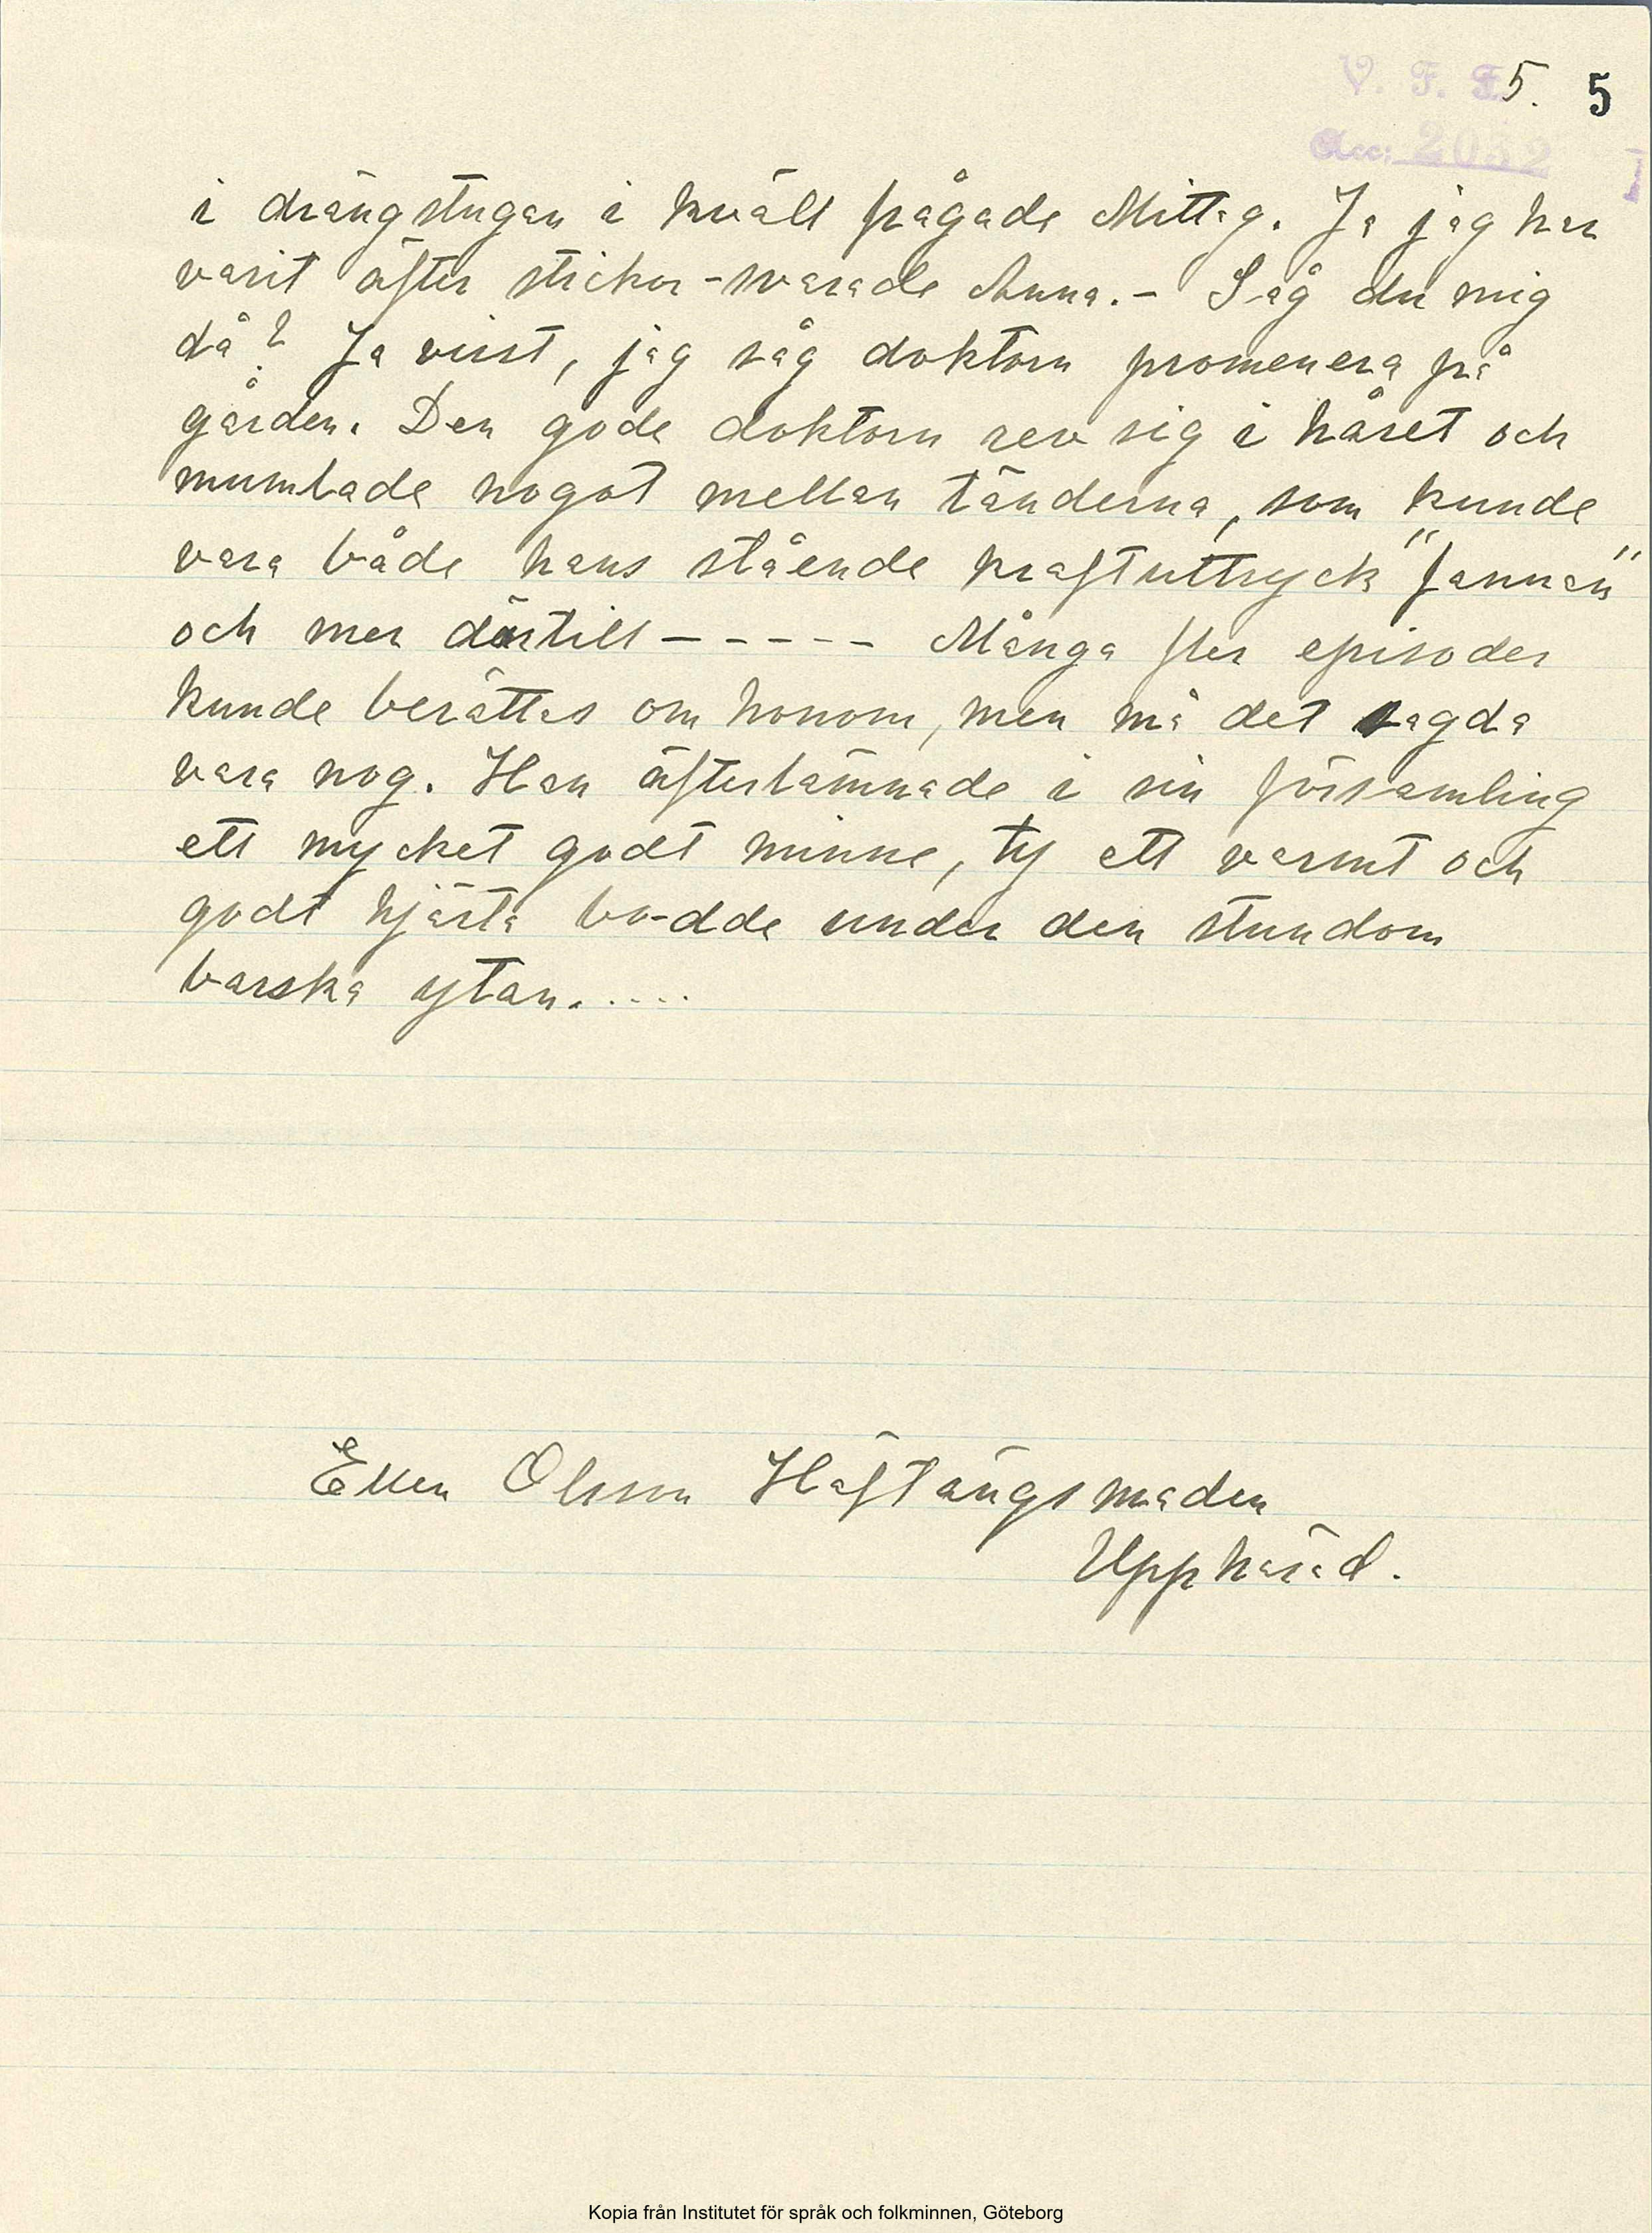 V. F. F. 5. 5
Acc: 2032
i drängstugan i kväll frågade Mittag. Ja jag har
varit äfter stickor - svarade Anna. - Såg du mig
då? Ja visst, jag såg doktorn promenera på
gården. Den gode doktorn rev sig i håret och
mumlade nogot mellan tänderna, som kunde
vara både hans stående kraftuttryck "fannan"
och mer därtill - - - - - Många fler episoder
kunde berättas om honom, men må det sagda
vara nog. Han äfterlämnade i sin församling
ett mycket godt minne, ty ett varmt och
godt hjärta bodde under den stundom
barska ytan. ....
Ellen Olsson Häftängsmaden
Upphärad.
Kopia från Institutet för språk och folkminnen, Göteborg